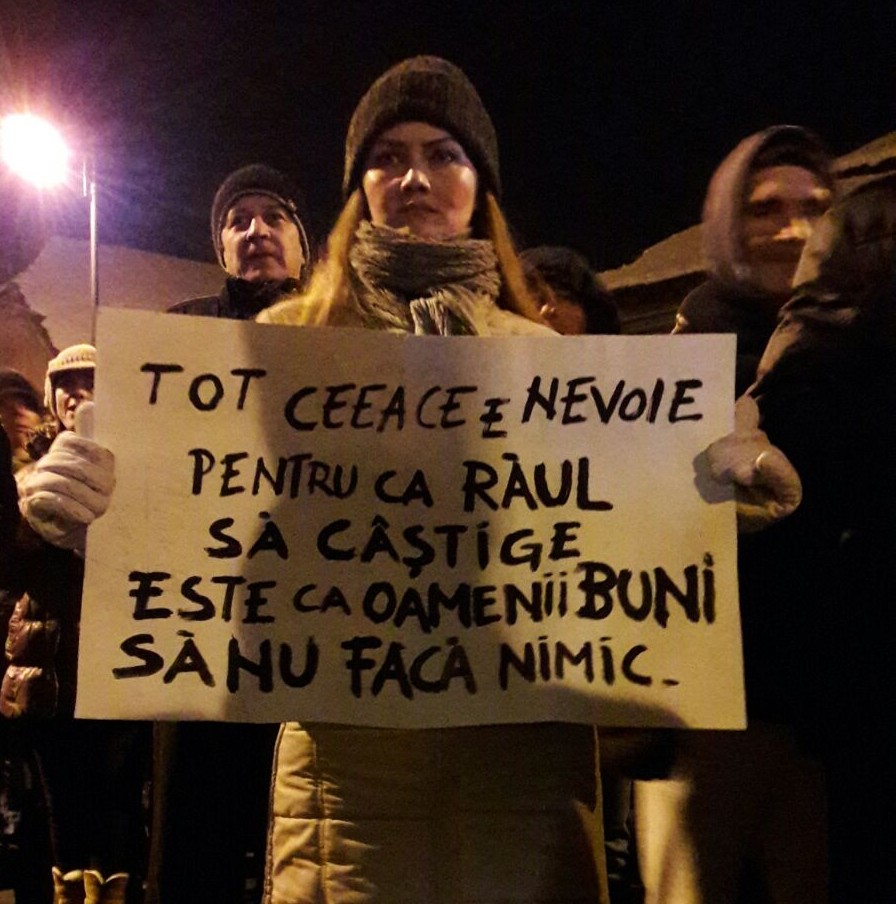 TOT CEEACE E NEVOIE
PENTRU CA RĂUL
SĂ CÂȘTIGE
ESTE CA OAMENII BUNI
SĂ NU FACĂ NIMIC.